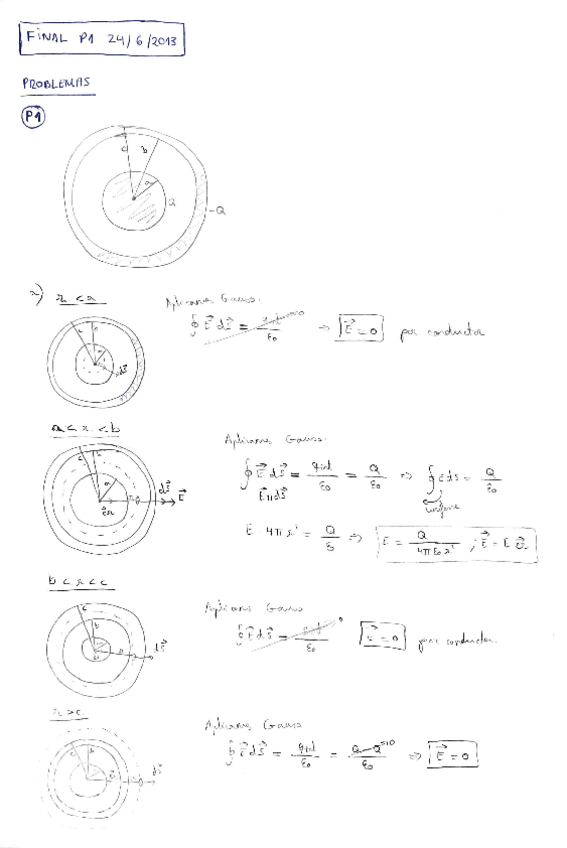 FINAL P1 24/6/2013
PROBLEMAS
P1
c b a Q -Q
a) r < a
Aplicamos Gauss.
∮ E⃗ dS⃗ = q int / ε₀ ⇒ E⃗ = 0 por conductor
a < r < b
Aplicamos Gauss.
∮ E⃗ dS⃗ = q int / ε₀ = Q / ε₀ ⇒ ∮ E dS = Q / ε₀
E⃗ ∥ dS⃗
E · 4π r² = Q / ε₀ ⇒ E = Q / 4π ε₀ r² ; E⃗ = E
b < r < c
Aplicamos Gauss
∮ E⃗ dS⃗ = / ε₀ E⃗ = 0 por conductor.
r > c
Aplicamos Gauss
∮ E⃗ dS⃗ = q int / ε₀ = Q - Q / ε₀ ⇒ E⃗ = 0